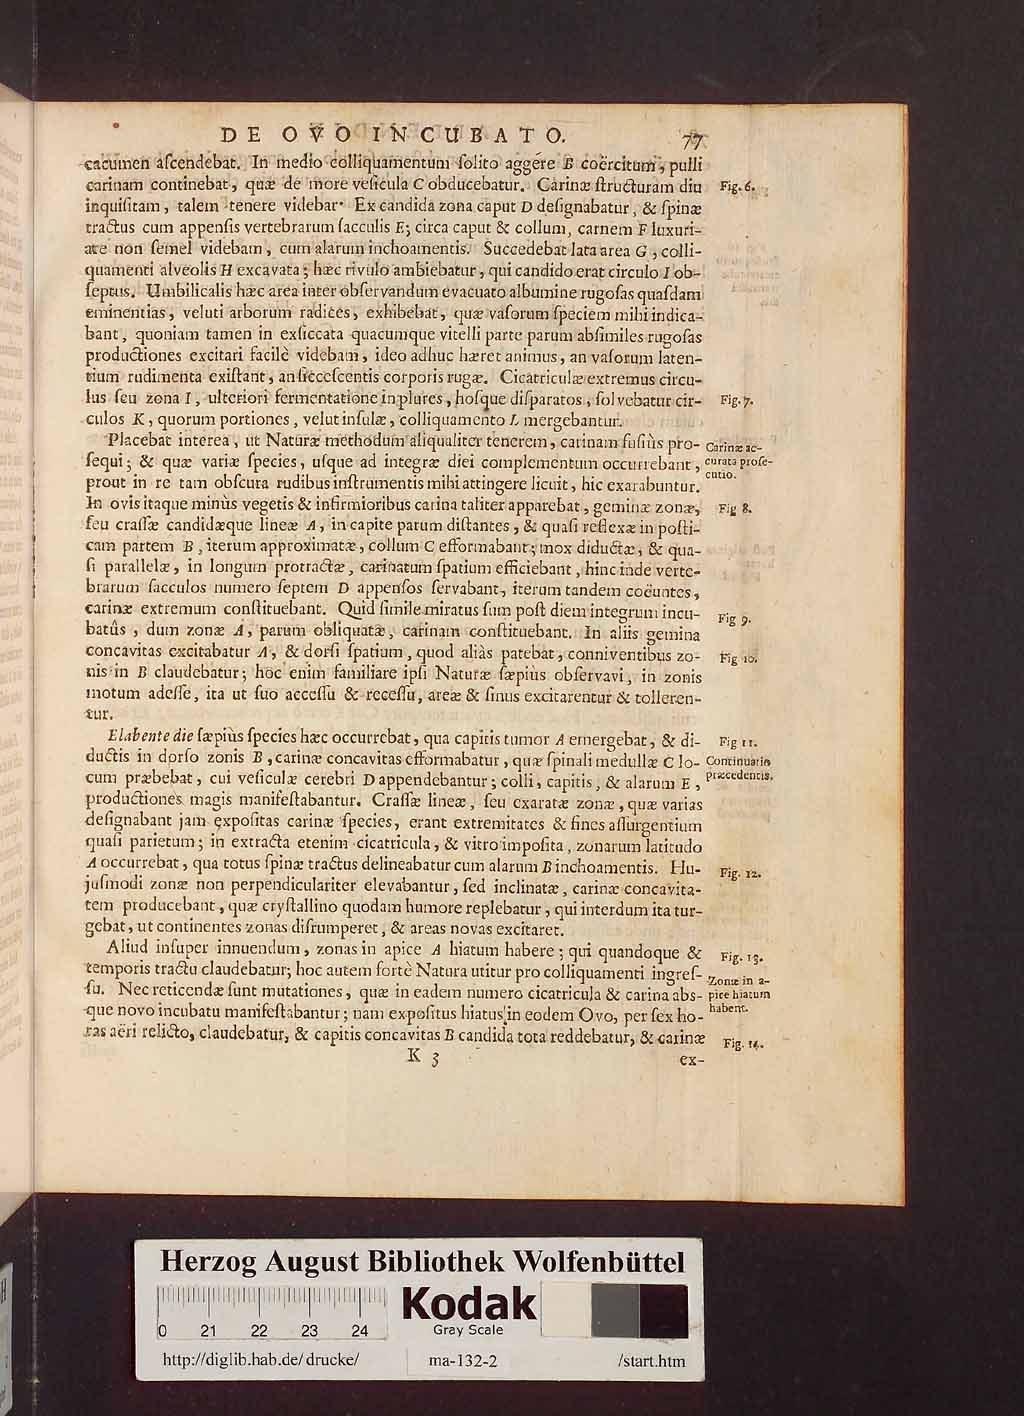 DE OVO INCUBATO. 77
cacumen aſcendebat. In medio colliquamentum ſolito aggere B coërcitum, pulli
carinam continebat, quæ de more veſicula C obducebatur. Carinæ ſtructuram diu
Fig. 6.
inquiſitam, talem tenere videbar. Ex candida zona caput D deſignabatur, & ſpinæ
tractus cum appenſis vertebrarum ſacculis E; circa caput & collum, carnem F luxuri-
are non ſemel videbam, cum alarum inchoamentis. Succedebat lata area G, colli-
quamenti alveolis H excavata; hæc rivulo ambiebatur, qui candido erat circulo I ob-
ſeptus. Umbilicalis hæc area inter obſervandum evacuato albumine rugoſas quaſdam
eminentias, veluti arborum radices, exhibebat, quæ vaſorum ſpeciem mihi indica-
bant, quoniam tamen in exſiccata quacumque vitelli parte parum abſimiles rugoſas
productiones excitari facilè videbam, ideo adhuc hæret animus, an vaſorum laten-
tium rudimenta exiſtant, an ſicceſcentis corporis rugæ. Cicatriculæ extremus circu-
lus ſeu zona I, ulteriori fermentatione in plures, hoſque diſparatos, ſolvebatur cir-
Fig. 7.
culos K, quorum portiones, velut inſulæ, colliquamento L mergebantur.
Placebat interea, ut Naturæ methodum aliqualiter tenerem, carinam fuſiùs pro-
Carinæ ac-
ſequi; & quæ variæ ſpecies, uſque ad integræ diei complementum occurrebant,
curata proſe-
cutio.
prout in re tam obſcura rudibus inſtrumentis mihi attingere licuit, hic exarabuntur.
In ovis itaque minùs vegetis & infirmioribus carina taliter apparebat, geminæ zonæ,
Fig 8.
ſeu craſſæ candidæque lineæ A, in capite parum diſtantes, & quaſi reflexæ in poſti-
cam partem B, iterum approximatæ, collum C efformabant; mox diductæ, & qua-
ſi parallelæ, in longum protractæ, carinatum ſpatium efficiebant, hinc inde verte-
brarum ſacculos numero ſeptem D appenſos ſervabant, iterum tandem coëuntes,
carinæ extremum conſtituebant. Quid ſimile miratus ſum poſt diem integrum incu-
Fig 9.
batûs, dum zonæ A, parum obliquatæ, carinam conſtituebant. In aliis gemina
concavitas excitabatur A, & dorſi ſpatium, quod aliàs patebat, conniventibus zo-
Fig 10.
nis in B claudebatur; hoc enim familiare ipſi Naturæ ſæpiùs obſervavi, in zonis
motum adeſſe, ita ut ſuo acceſſu & receſſu, areæ & ſinus excitarentur & tolleren-
tur.
Elabente die ſæpiùs ſpecies hæc occurrebat, qua capitis tumor A emergebat, & di-
Fig 11.
ductis in dorſo zonis B, carinæ concavitas efformabatur, quæ ſpinali medullæ C lo-
Continuatio
cum præbebat, cui veſiculæ cerebri D appendebantur; colli, capitis, & alarum E,
præcedentis.
productiones magis manifeſtabantur. Craſſæ lineæ, ſeu exaratæ zonæ, quæ varias
deſignabant jam expoſitas carinæ ſpecies, erant extremitates & fines aſſurgentium
quaſi parietum; in extracta etenim cicatricula, & vitro impoſita, zonarum latitudo
A occurrebat, qua totus ſpinæ tractus delineabatur cum alarum B inchoamentis. Hu-
Fig. 12.
juſmodi zonæ non perpendiculariter elevabantur, ſed inclinatæ, carinæ concavita-
tem producebant, quæ cryſtallino quodam humore replebatur, qui interdum ita tur-
gebat, ut continentes zonas diſrumperet, & areas novas excitaret.
Aliud inſuper innuendum, zonas in apice A hiatum habere; qui quandoque &
Fig. 13.
temporis tractu claudebatur; hoc autem fortè Natura utitur pro colliquamenti ingreſ-
Zonæ in a-
ſu. Nec reticendæ ſunt mutationes, quæ in eadem numero cicatricula & carina abs-
pice hiatum
que novo incubatu manifeſtabantur; nam expoſitus hiatus in eodem Ovo, per ſex ho-
habent.
ras aëri relicto, claudebatur, & capitis concavitas B candida tota reddebatur, & carinæ
Fig. 14.
K 3 ex-
Herzog August Bibliothek Wolfenbüttel
0 21 22 23 24
Kodak
Gray Scale
http://diglib.hab.de/drucke/ ma-132-2 /start.htm